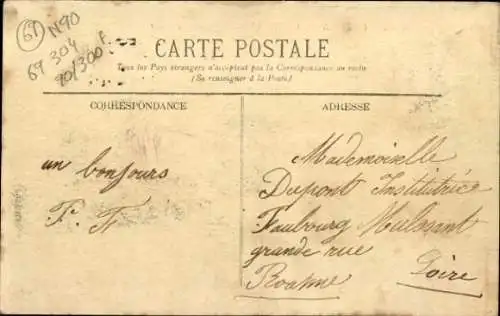 69 N90
69 304
90/300 F
CARTE POSTALE
Tous les Pays étrangers n'acceptent pas la Correspondance au recto
(Se renseigner à la Poste)
CORRESPONDANCE
un bonjours
F. F
ADRESSE
Mademoiselle
Dupont Institutrice
Faubourg Mulsant
grande rue
Roanne
Loire